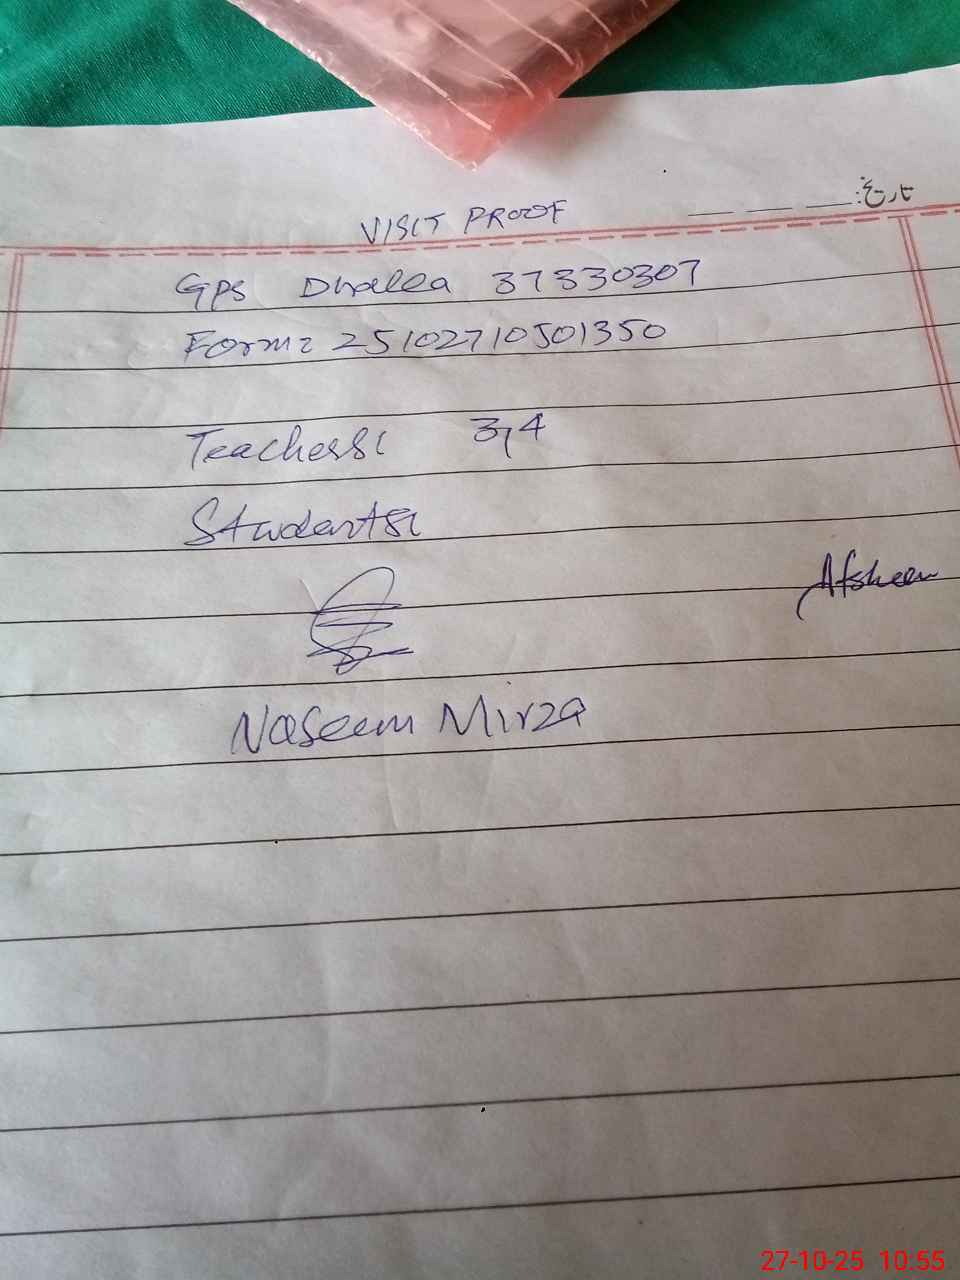 تاریخ:
VISIT PROOF
GPS Dhalla 37330307
Form: 25102710501350
Teachers: 3,4
Students:
Afsheen
Naseem Mirza
27-10-25 10:55